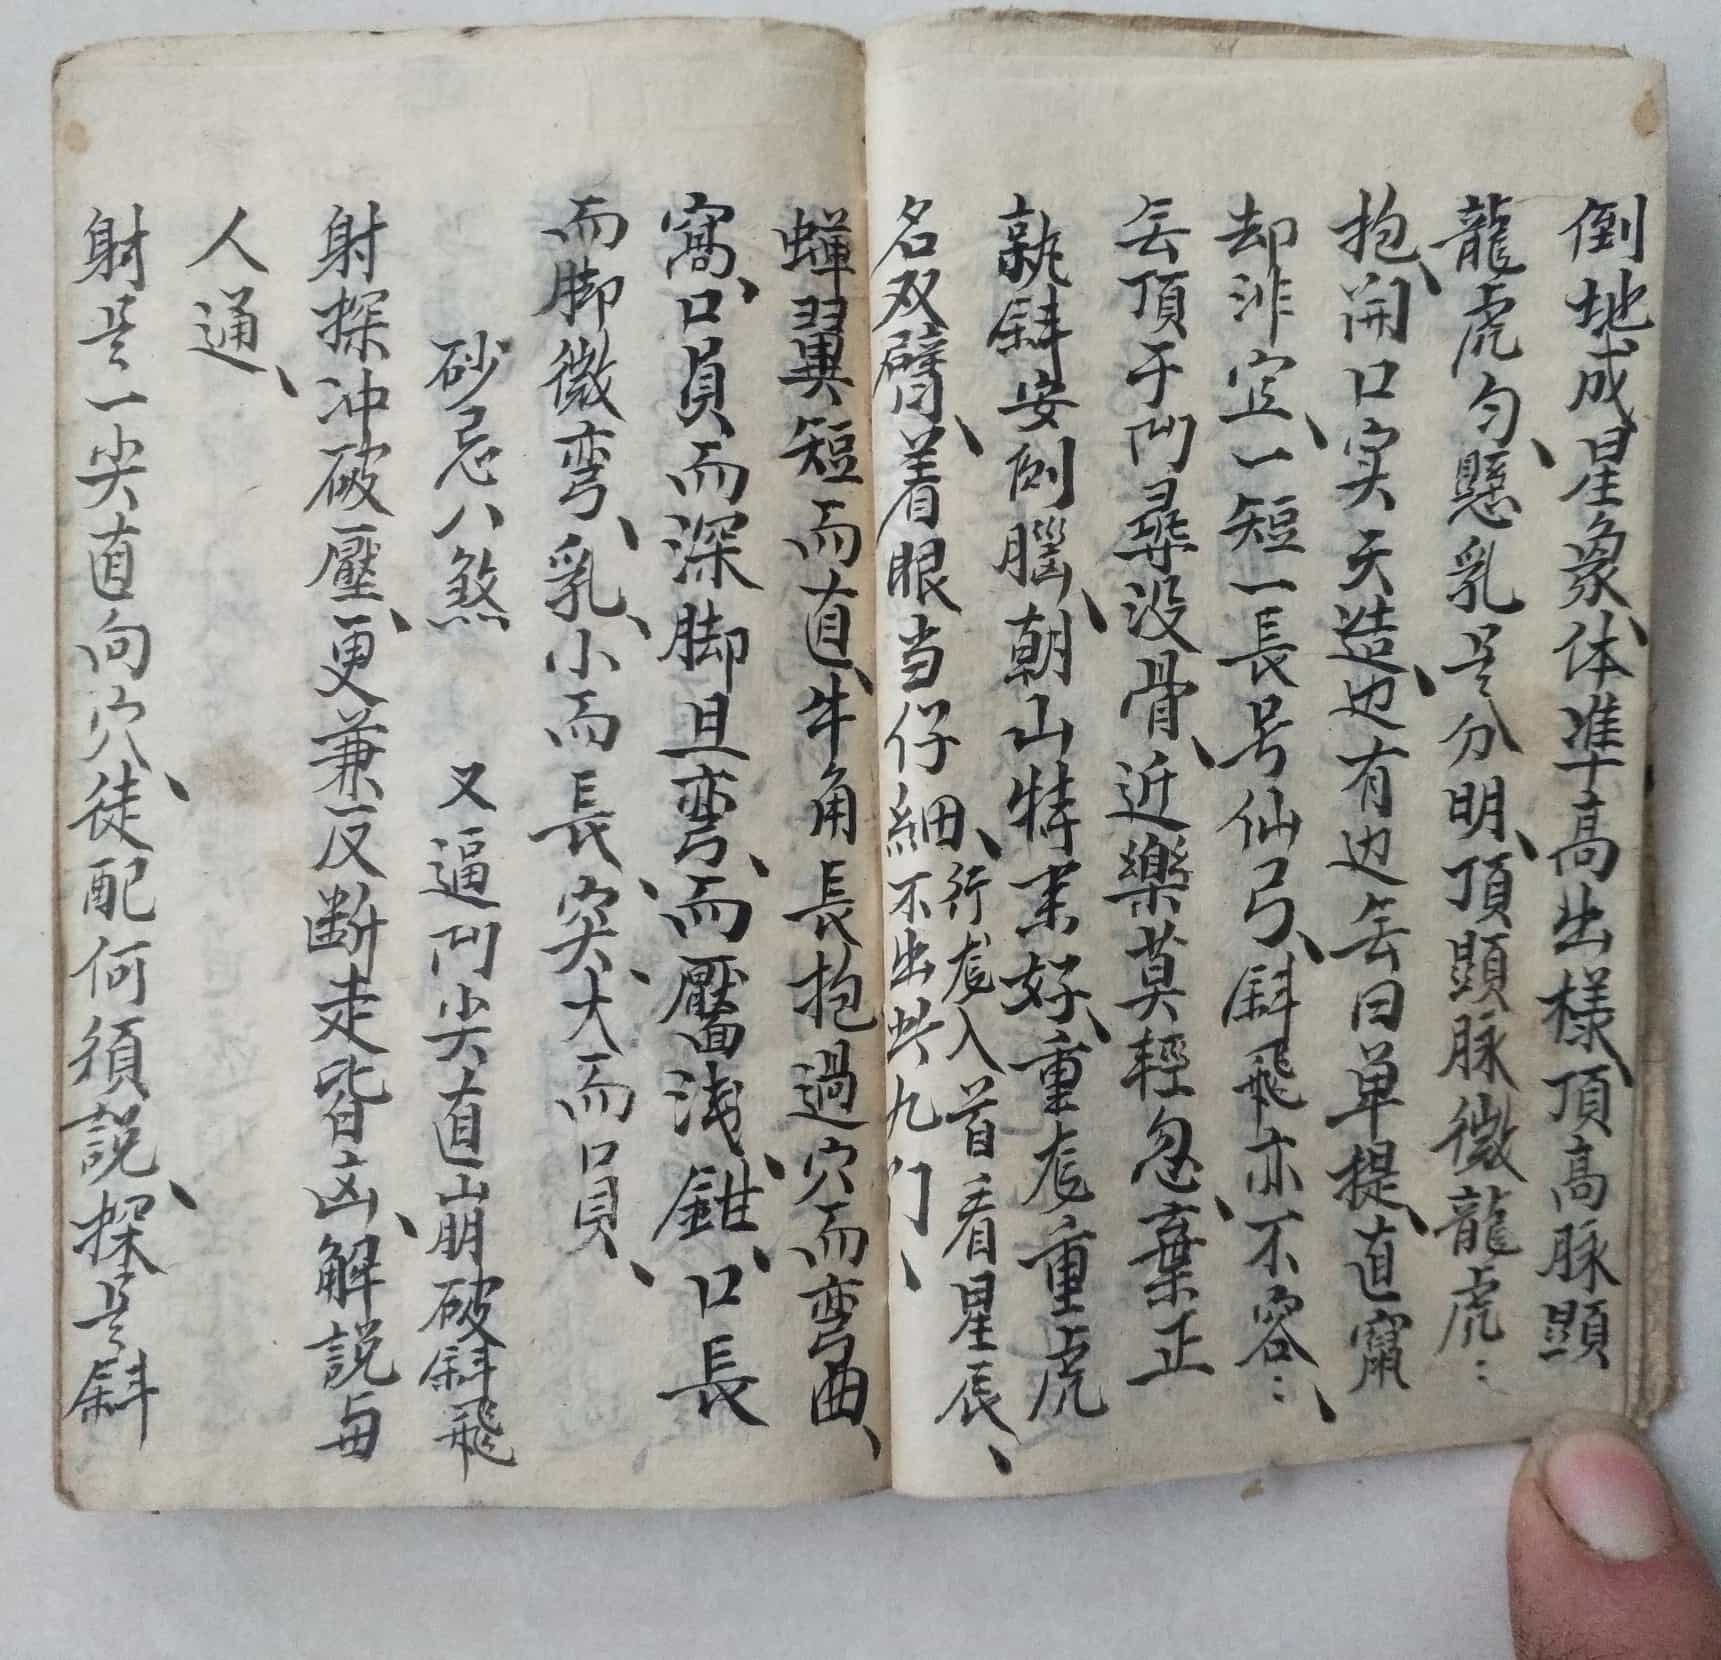 倒地成星象、体準高出樣、頂高脉顕
龍虎匀、懸乳是分明、頂顕脉微龍虎⋮
抱、開口実天造、边有边無曰单提、直窩
却非宜、一短一長号仙弓、斜飛亦不容⋮、
無頂于凹尋没骨、近樂莫輕忽、棄正
孰斜安倒腦、朝山特来好、重龙重虎
名双臂、着眼当仔細、行龙入首看星辰、
不出此九门、
蝉翼短而直、牛角長抱過穴而弯曲、
窩、口員而深脚且弯、而靨面浅、鉗、口長
而脚微弯、乳、小而長、突、大而員、
砂忌八煞 又逼凹尖直崩破斜飛
射探冲破壓、更兼反断走皆凶、解説与
人通、
射是一尖直向穴、徒配何須説、探是斜